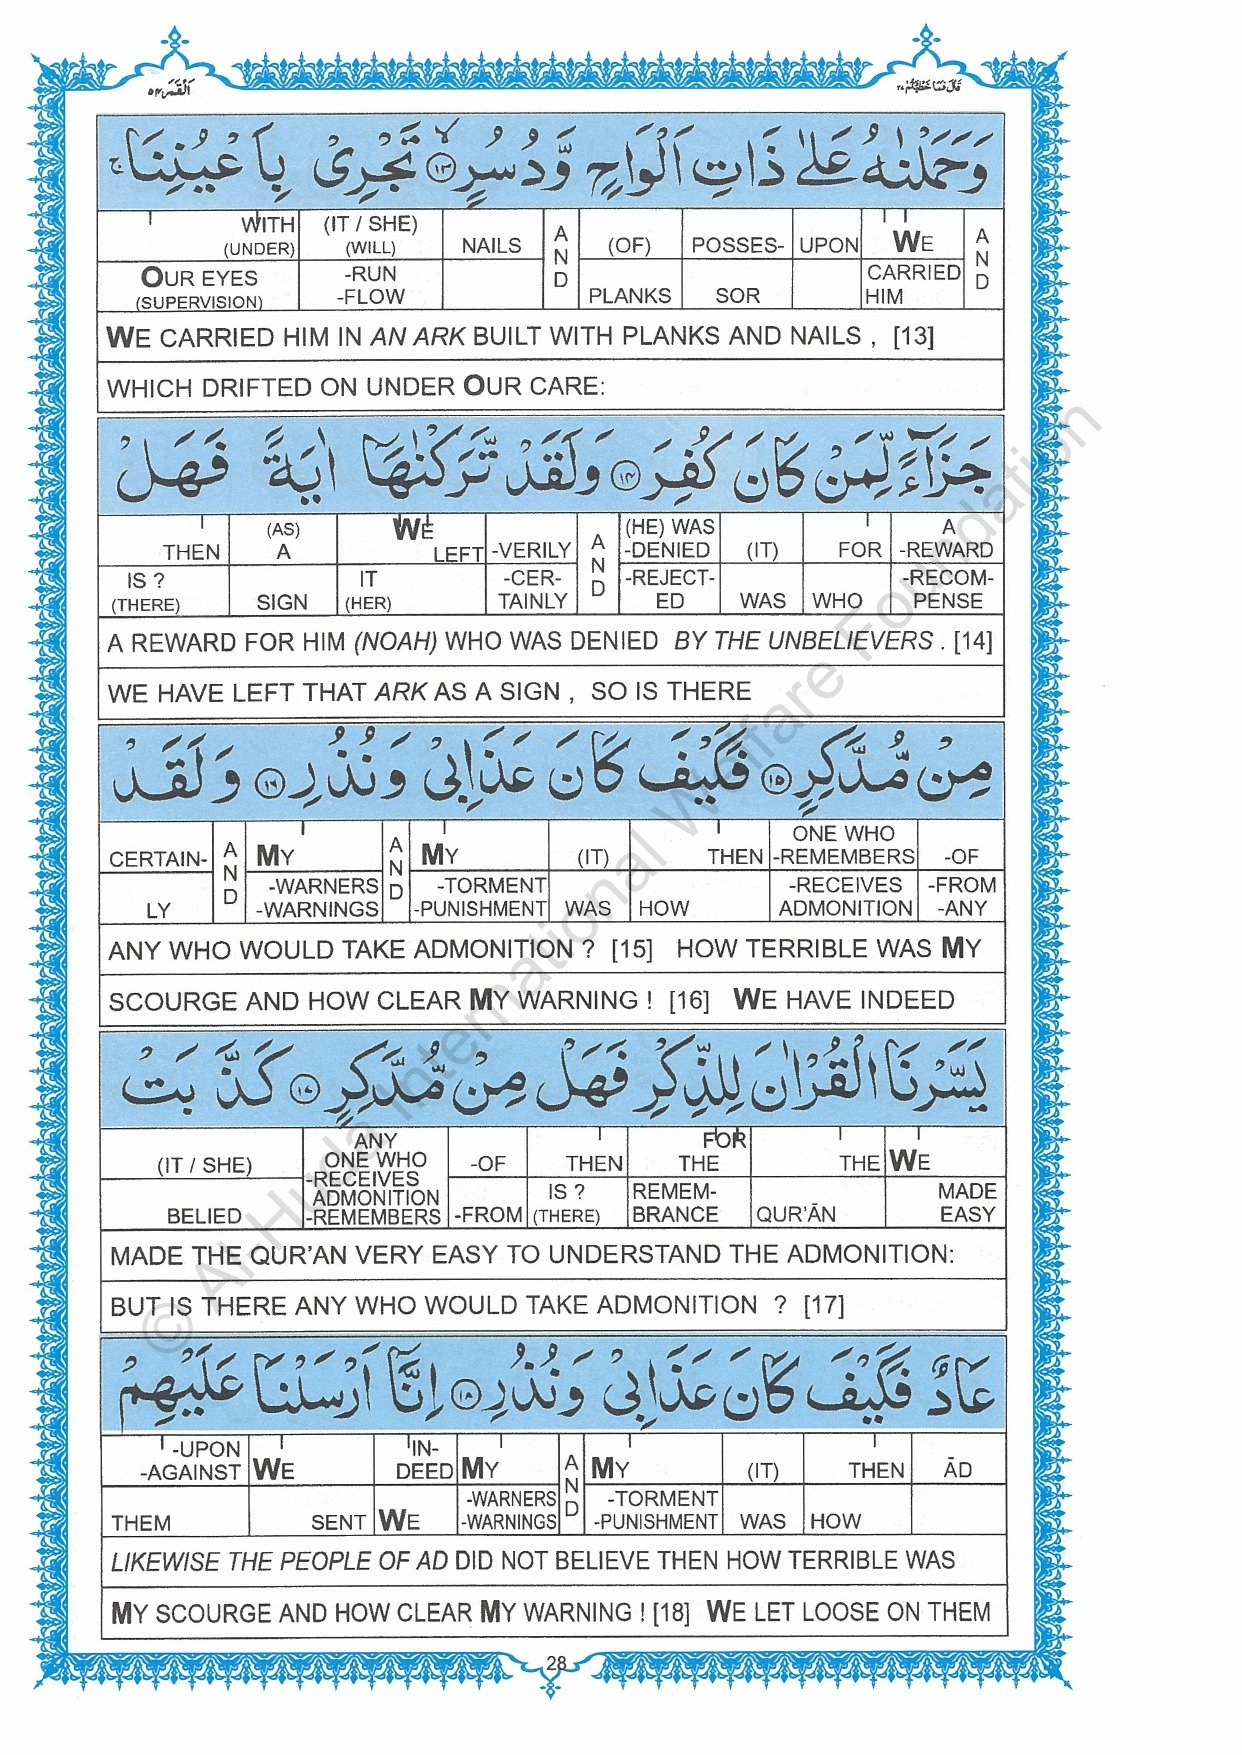 اَلْقَمَر ٥٤
قَالَ فَمَا خَطْبُكُمْ ٢٧
وَحَمَلْنٰهُ عَلٰى ذَاتِ اَلْوَاحٍ وَّدُسُرٍ ۙ١٣ تَجْرِیْ بِاَعْیُنِنَا ۚ
WITH (UNDER) (IT / SHE) (WILL) NAILS AND (OF) POSSES- UPON WE AND
OUR EYES (SUPERVISION) -RUN -FLOW PLANKS SOR CARRIED HIM
WE CARRIED HIM IN AN ARK BUILT WITH PLANKS AND NAILS , [13]
WHICH DRIFTED ON UNDER OUR CARE:
جَزَآءً لِّمَنْ كَانَ كُفِرَ ١٤ وَلَقَدْ تَّرَكْنٰهَاۤ اٰیَةً فَهَلْ
THEN (AS) A WE LEFT -VERILY AND (HE) WAS -DENIED (IT) FOR A -REWARD
IS ? (THERE) SIGN IT (HER) -CER- TAINLY -REJECT- ED WAS WHO -RECOM- PENSE
A REWARD FOR HIM (NOAH) WHO WAS DENIED BY THE UNBELIEVERS . [14]
WE HAVE LEFT THAT ARK AS A SIGN , SO IS THERE
مِنْ مُّدَّكِرٍ ١٥ فَكَیْفَ كَانَ عَذَابِیْ وَنُذُرِ ١٦ وَلَقَدْ
CERTAIN- AND MY AND MY (IT) THEN ONE WHO -REMEMBERS -OF
LY -WARNERS -WARNINGS -TORMENT -PUNISHMENT WAS HOW -RECEIVES ADMONITION -FROM -ANY
ANY WHO WOULD TAKE ADMONITION ? [15] HOW TERRIBLE WAS MY
SCOURGE AND HOW CLEAR MY WARNING ! [16] WE HAVE INDEED
یَسَّرْنَا الْقُرْاٰنَ لِلذِّكْرِ فَهَلْ مِنْ مُّدَّكِرٍ ١٧ كَذَّبَتْ
(IT / SHE) ANY ONE WHO -RECEIVES ADMONITION -REMEMBERS -OF THEN FOR THE THE WE
BELIED -FROM IS ? (THERE) REMEM- BRANCE QUR'ĀN MADE EASY
MADE THE QUR'AN VERY EASY TO UNDERSTAND THE ADMONITION:
BUT IS THERE ANY WHO WOULD TAKE ADMONITION ? [17]
عَادٌ فَكَیْفَ كَانَ عَذَابِیْ وَنُذُرِ ١٨ اِنَّاۤ اَرْسَلْنَا عَلَیْهِمْ
-UPON -AGAINST WE IN- DEED MY AND MY (IT) THEN ĀD
THEM SENT WE -WARNERS -WARNINGS -TORMENT -PUNISHMENT WAS HOW
LIKEWISE THE PEOPLE OF AD DID NOT BELIEVE THEN HOW TERRIBLE WAS
MY SCOURGE AND HOW CLEAR MY WARNING ! [18] WE LET LOOSE ON THEM
28
© Al-Huda International Welfare Foundation